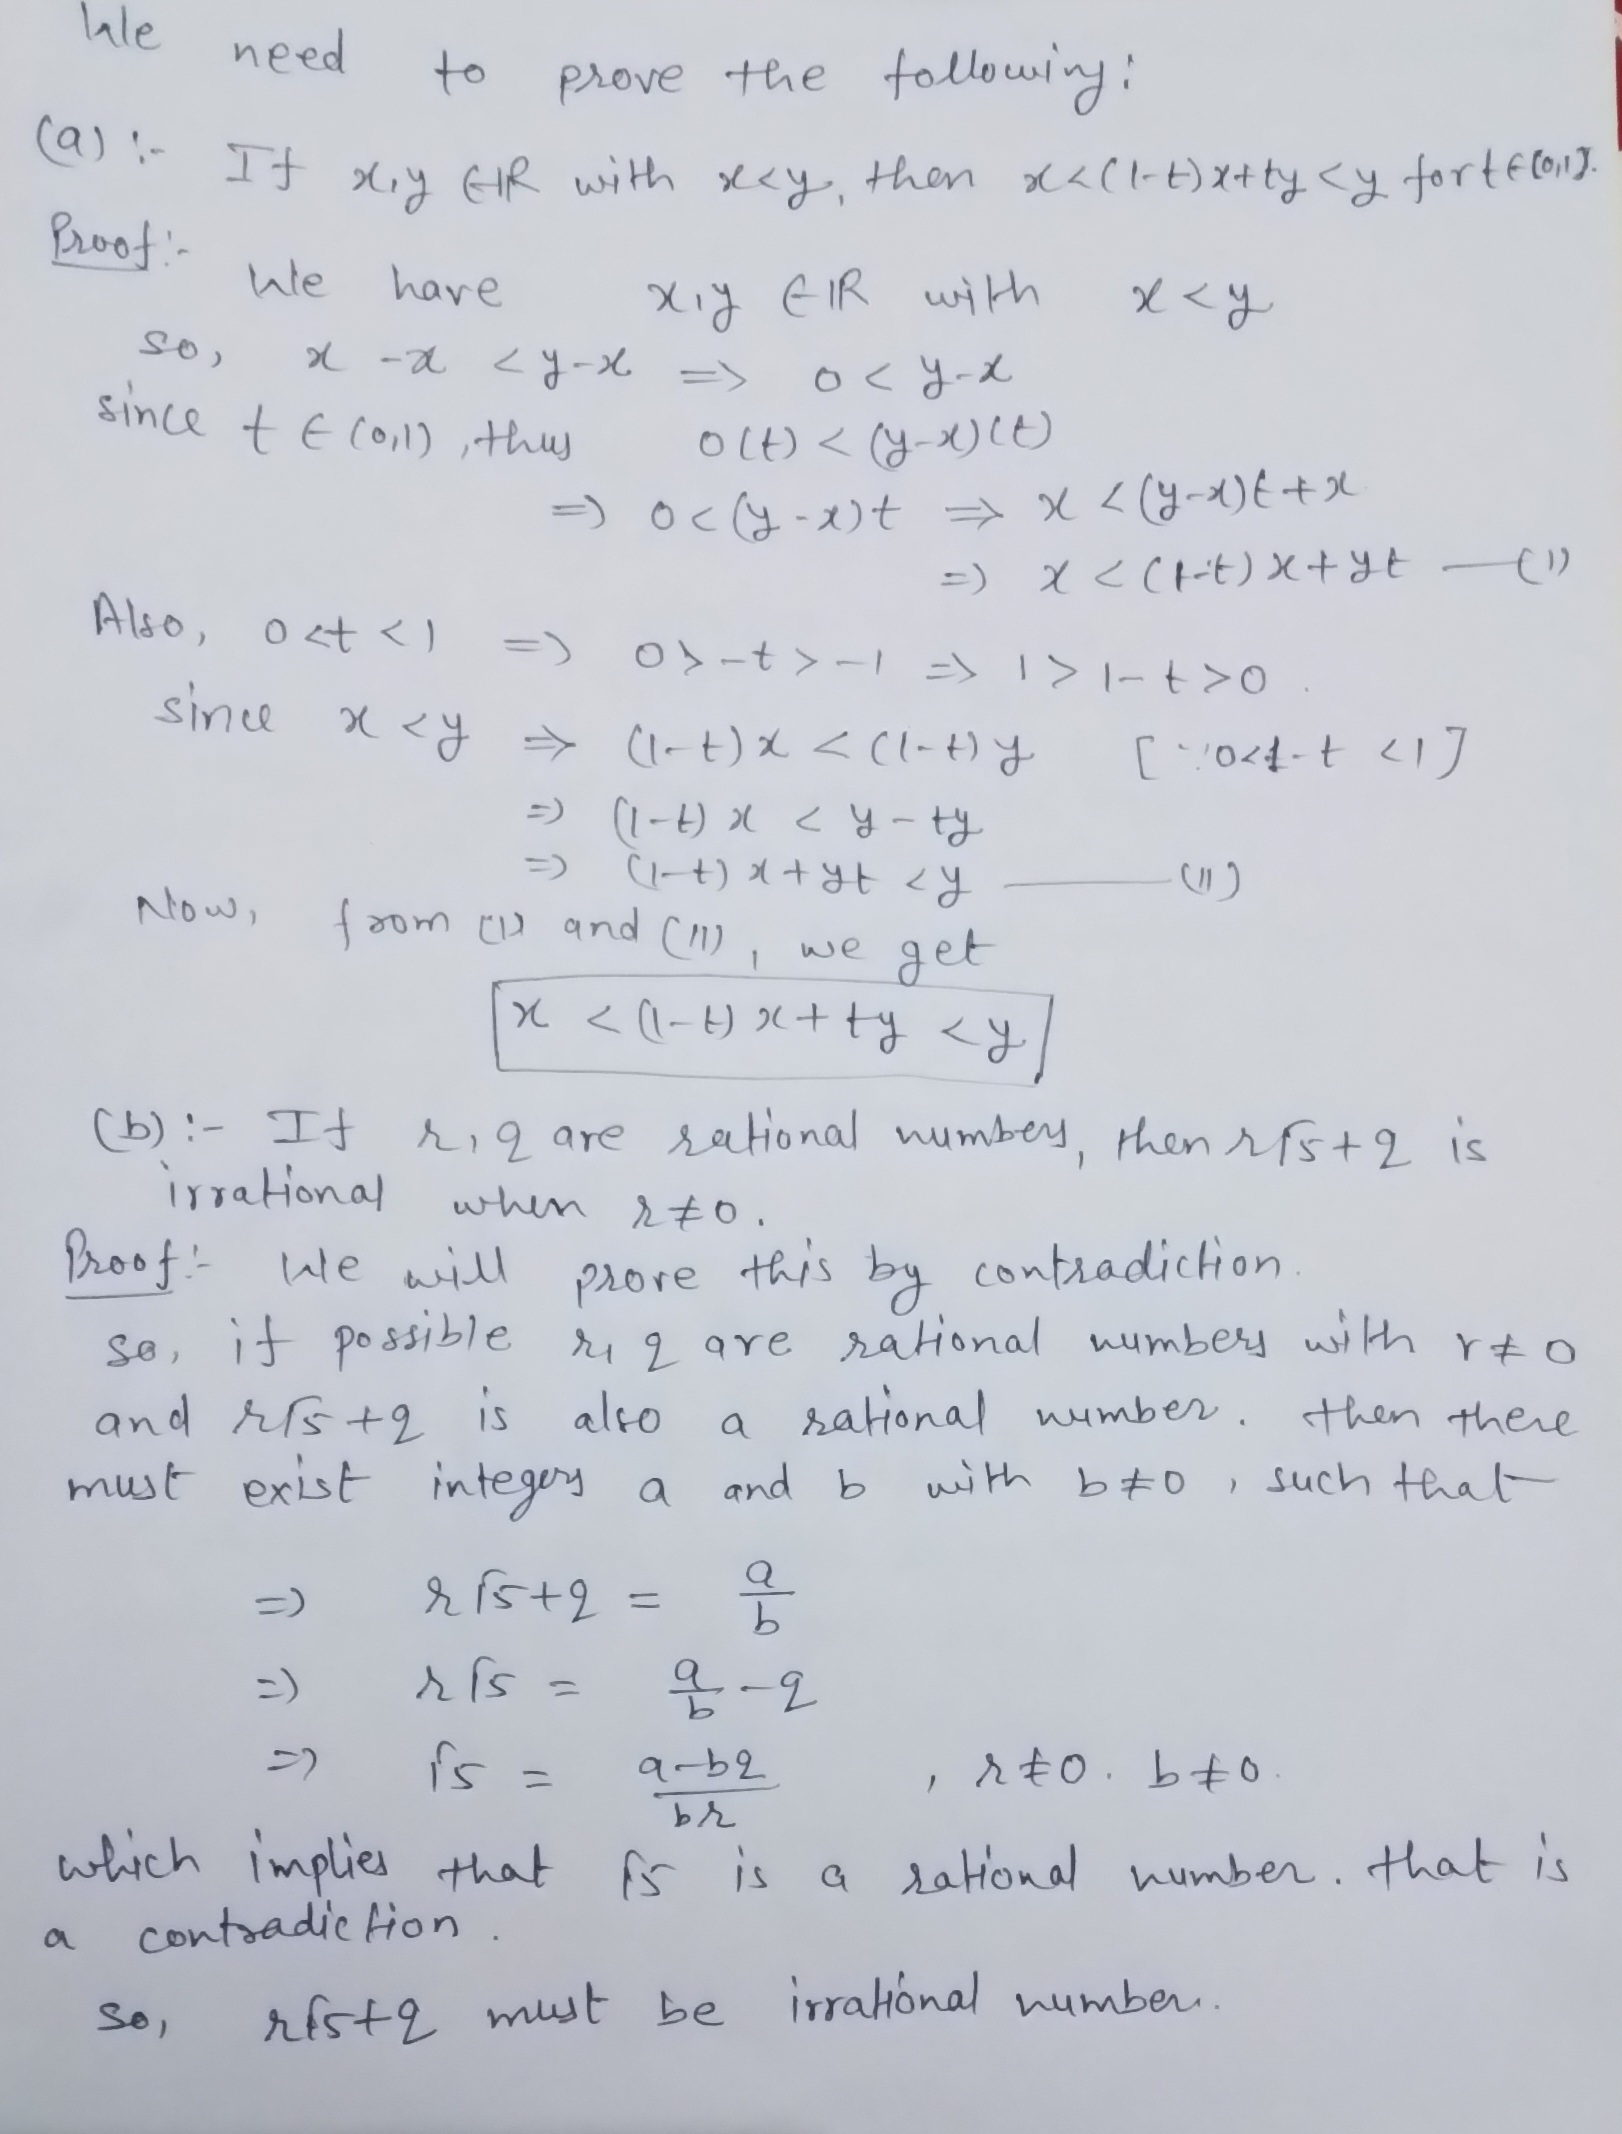 We need to prove the following:
(a) :- If x,y ∈ ℝ with x<y, then x<(1-t)x+ty<y for t∈(0,1).
Proof:-
We have x,y ∈ ℝ with x<y
so, x-x < y-x => 0 < y-x
since t ∈ (0,1), thus 0(t) < (y-x)(t)
=> 0<(y-x)t => x <(y-x)t+x
=> x < (1-t)x+yt —(I)
Also, 0<t<1 => 0>-t>-1 => 1>1-t>0.
since x<y => (1-t)x < (1-t)y [∵ 0<1-t<1]
=> (1-t)x < y-ty
=> (1-t)x+yt <y —(II)
Now, from (I) and (II), we get
x < (1-t)x+ty <y
(b) :- If r,q are rational numbers, then r√5+q is
irrational when r≠0.
Proof:- We will prove this by contradiction.
so, if possible r, q are rational numbers with r≠0
and r√5+q is also a rational number. then there
must exist integers a and b with b≠0, such that
=> r√5+q = a/b
=> r√5 = a/b -q
=> √5 = (a-bq)/br , r≠0. b≠0.
which implies that √5 is a rational number. that is
a contradiction.
so, r√5+q must be irrational number.